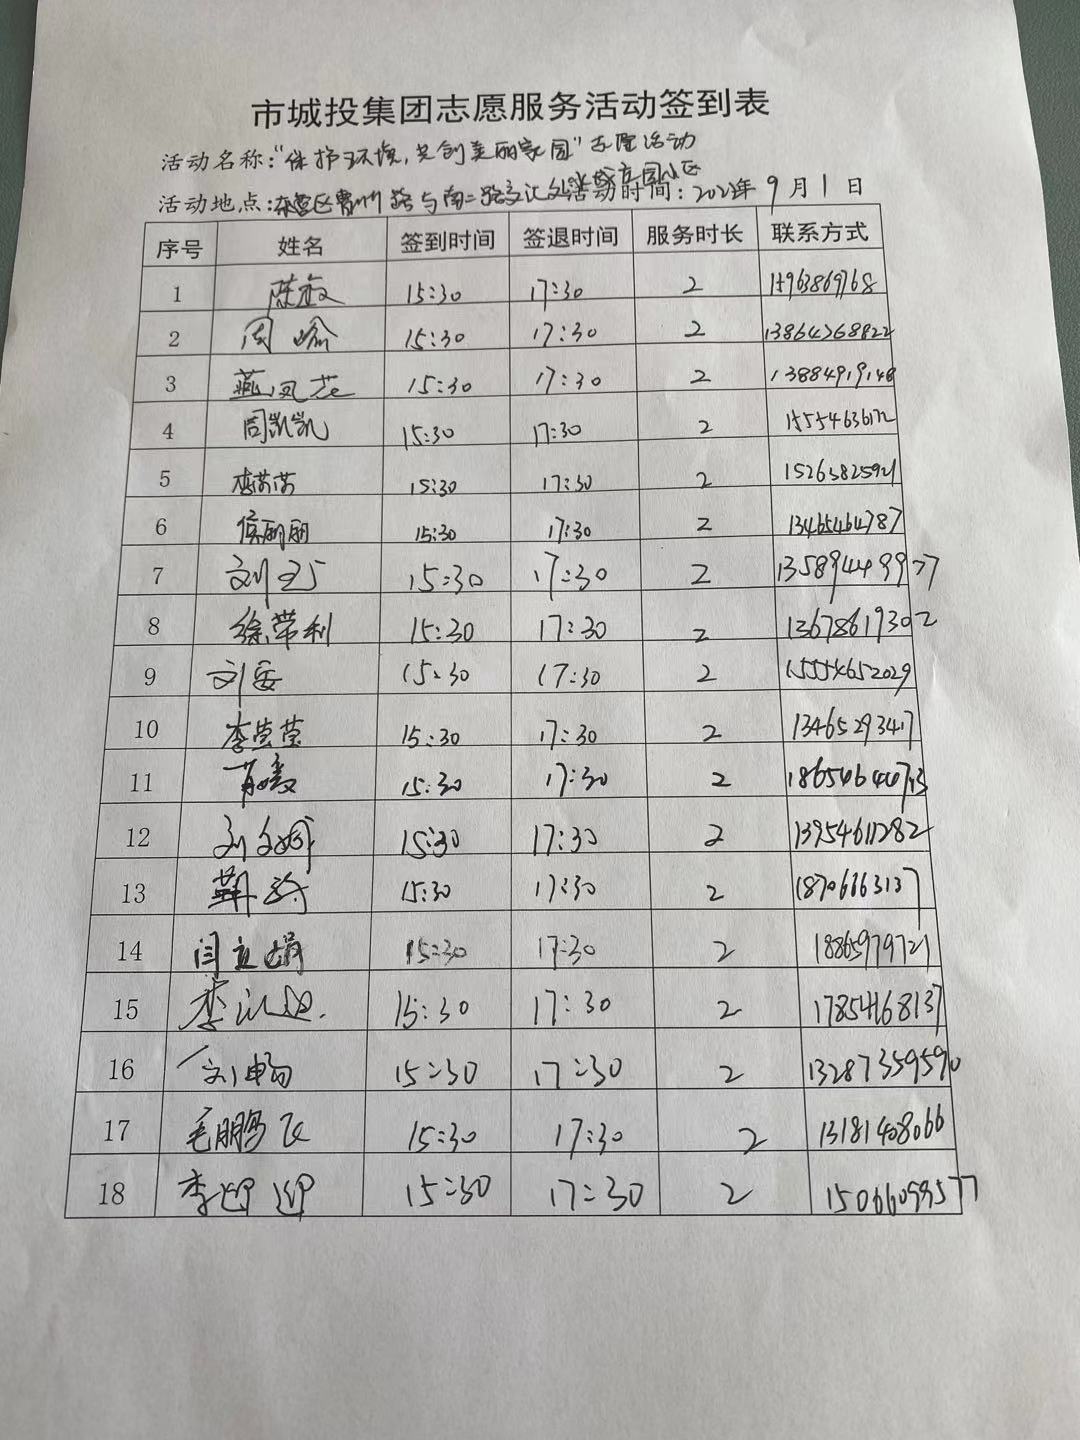 市城投集团志愿服务活动签到表
活动名称："保护环境，共创美丽家园"志愿活动
活动地点：东营区曹州路与南二路交汇处 活动时间：2023年9月1日
序号 姓名 签到时间 签退时间 服务时长 联系方式
1 15:30 17:30 2 15963869768
2 周瑜 15:30 17:30 2 13864768822
3 燕凤芝 15:30 17:30 2 13884919148
4 周凯凯 15:30 17:30 2 15554636172
5 李芳芳 15:30 17:30 2 15263825921
6 侯丽丽 15:30 17:30 2 13465464787
7 15:30 17:30 2 13589449977
8 徐荣利 15:30 17:30 2 13678617302
9 15:30 17:30 2 15554652029
10 李莹莹 15:30 17:30 2 13465293417
11 15:30 17:30 2
12 15:30 17:30 2 13954611282
13 15:30 17:30 2 18706663137
14 闫立娟 15:30 17:30 2 18865979721
15 15:30 17:30 2 17854168137
16 刘畅 15:30 17:30 2 13287359590
17 毛鹏飞 15:30 17:30 2 13181408066
18 15:30 17:30 2 15066099577